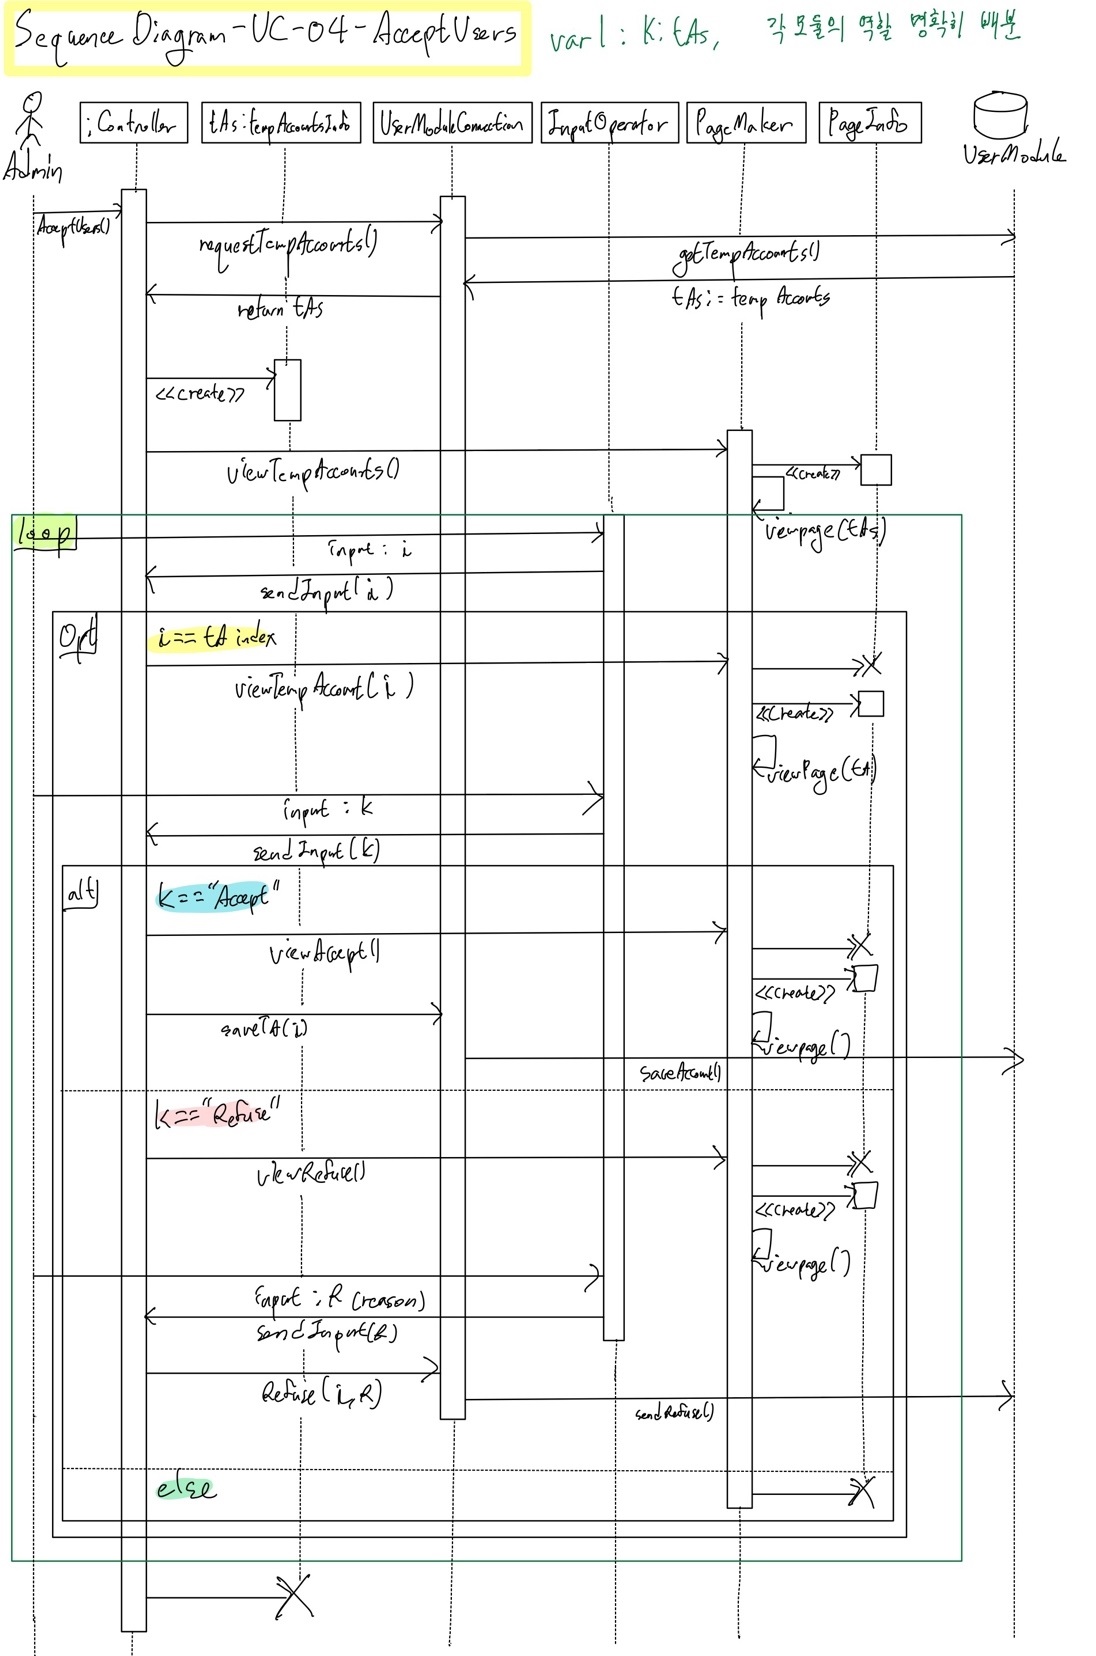 Sequence Diagram-UC-04-AcceptUsers
var1 : K: tAs, 각 모듈의 역할 명확히 배분
Admin
:Controller
tAs:tempAccountsInfo
UserModuleConnection
InputOperator
PageMaker
PageInfo
UserModule
AcceptUsers()
requestTempAccounts()
getTempAccounts()
tAs:= temp Accounts
return tAs
<<create>>
viewTempAccounts()
<<create>>
viewpage(tAs)
loop
input : i
sendInput(i)
Opt
i== tA index
viewTempAccount(i)
<<Create>>
viewPage(tA)
input : k
sendInput(k)
alt
k=="Accept"
viewAccept()
<<Create>>
saveTA(i)
viewpage()
saveAccount()
k=="Refuse"
viewRefuse()
<<Create>>
viewpage()
input : R (reason)
sendInput(R)
Refuse(i,R)
sendRefuse()
else